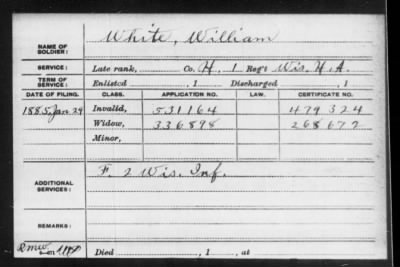 NAME OF SOLDIER: White, William
SERVICE: Late rank, Co. H, 1 Reg't Wis. H. A.
TERM OF SERVICE: Enlisted , 1 Discharged , 1
DATE OF FILING. CLASS. APPLICATION NO. LAW. CERTIFICATE NO.
1885, Jan 29 Invalid, 531164 479324
Widow, 336898 268672
Minor,
ADDITIONAL SERVICES: F. 2 Wis. Inf.
REMARKS:
Died , 1 , at